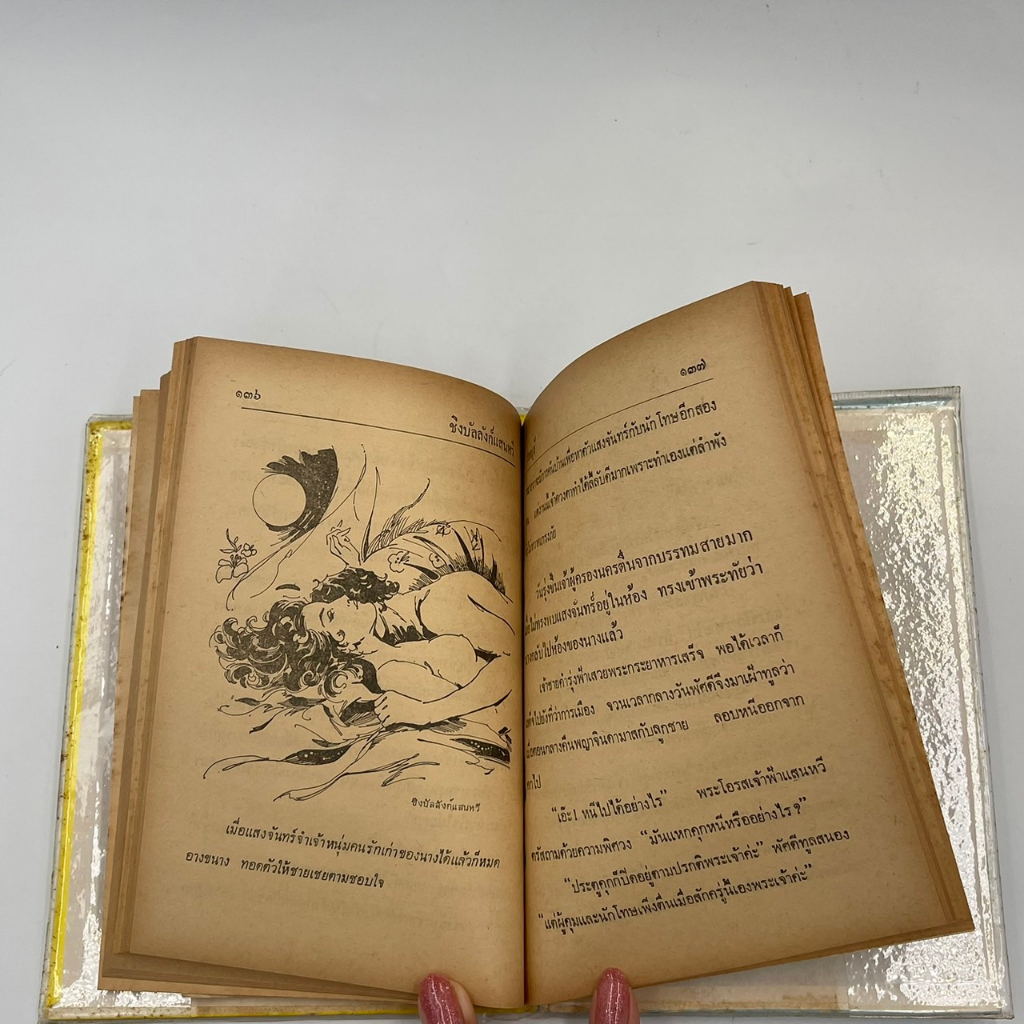 ๑๓๖
ชิงบัลลังก์แสนหวี
ชิงบัลลังก์แสนหวี
เมื่อแสงจันทร์จำเจ้าหนุ่มคนรักเก่าของนางได้แล้วก็หมด
อางขนาง ทอดตัวให้ชายเชยตามชอบใจ
๑๓๗
ค้นบ้านเพื่อหาตัวแสงจันทร์กับนักโทษอีกสอง
ทำได้ลี้ลับดีมากเพราะทำเองแต่ลำพัง
วันรุ่งขึ้นเจ้าผู้ครองนครตื่นจากบรรทมสายมาก
ไม่ทรงพบแสงจันทร์อยู่ในห้อง ทรงเข้าพระทัยว่า
กลับไปห้องของนางแล้ว
เจ้าชายคำรุ่งฟ้าเสวยพระกระยาหารเสร็จ พอได้เวลาก็
ไปยังที่ว่าการเมือง จวนเวลากลางวันพัศดีจึงมาเฝ้าทูลว่า
เมื่อตอนกลางคืนพญาจินดามาสกับลูกชาย ลอบหนีออกจาก
ไป
“เอ๊ะ! หนีไปได้อย่างไร” พระโอรสเจ้าฟ้าแสนหวี
ตรัสถามด้วยความพิศวง “มันแหกคุกหนีหรืออย่างไร?”
“ประตูคุกก็ปิดอยู่ตามปรกติพระเจ้าค่ะ” พัศดีทูลสนอง
“แต่ผู้คุมและนักโทษเพิ่งตื่นเมื่อสักครู่นี้เองพระเจ้าค่ะ”